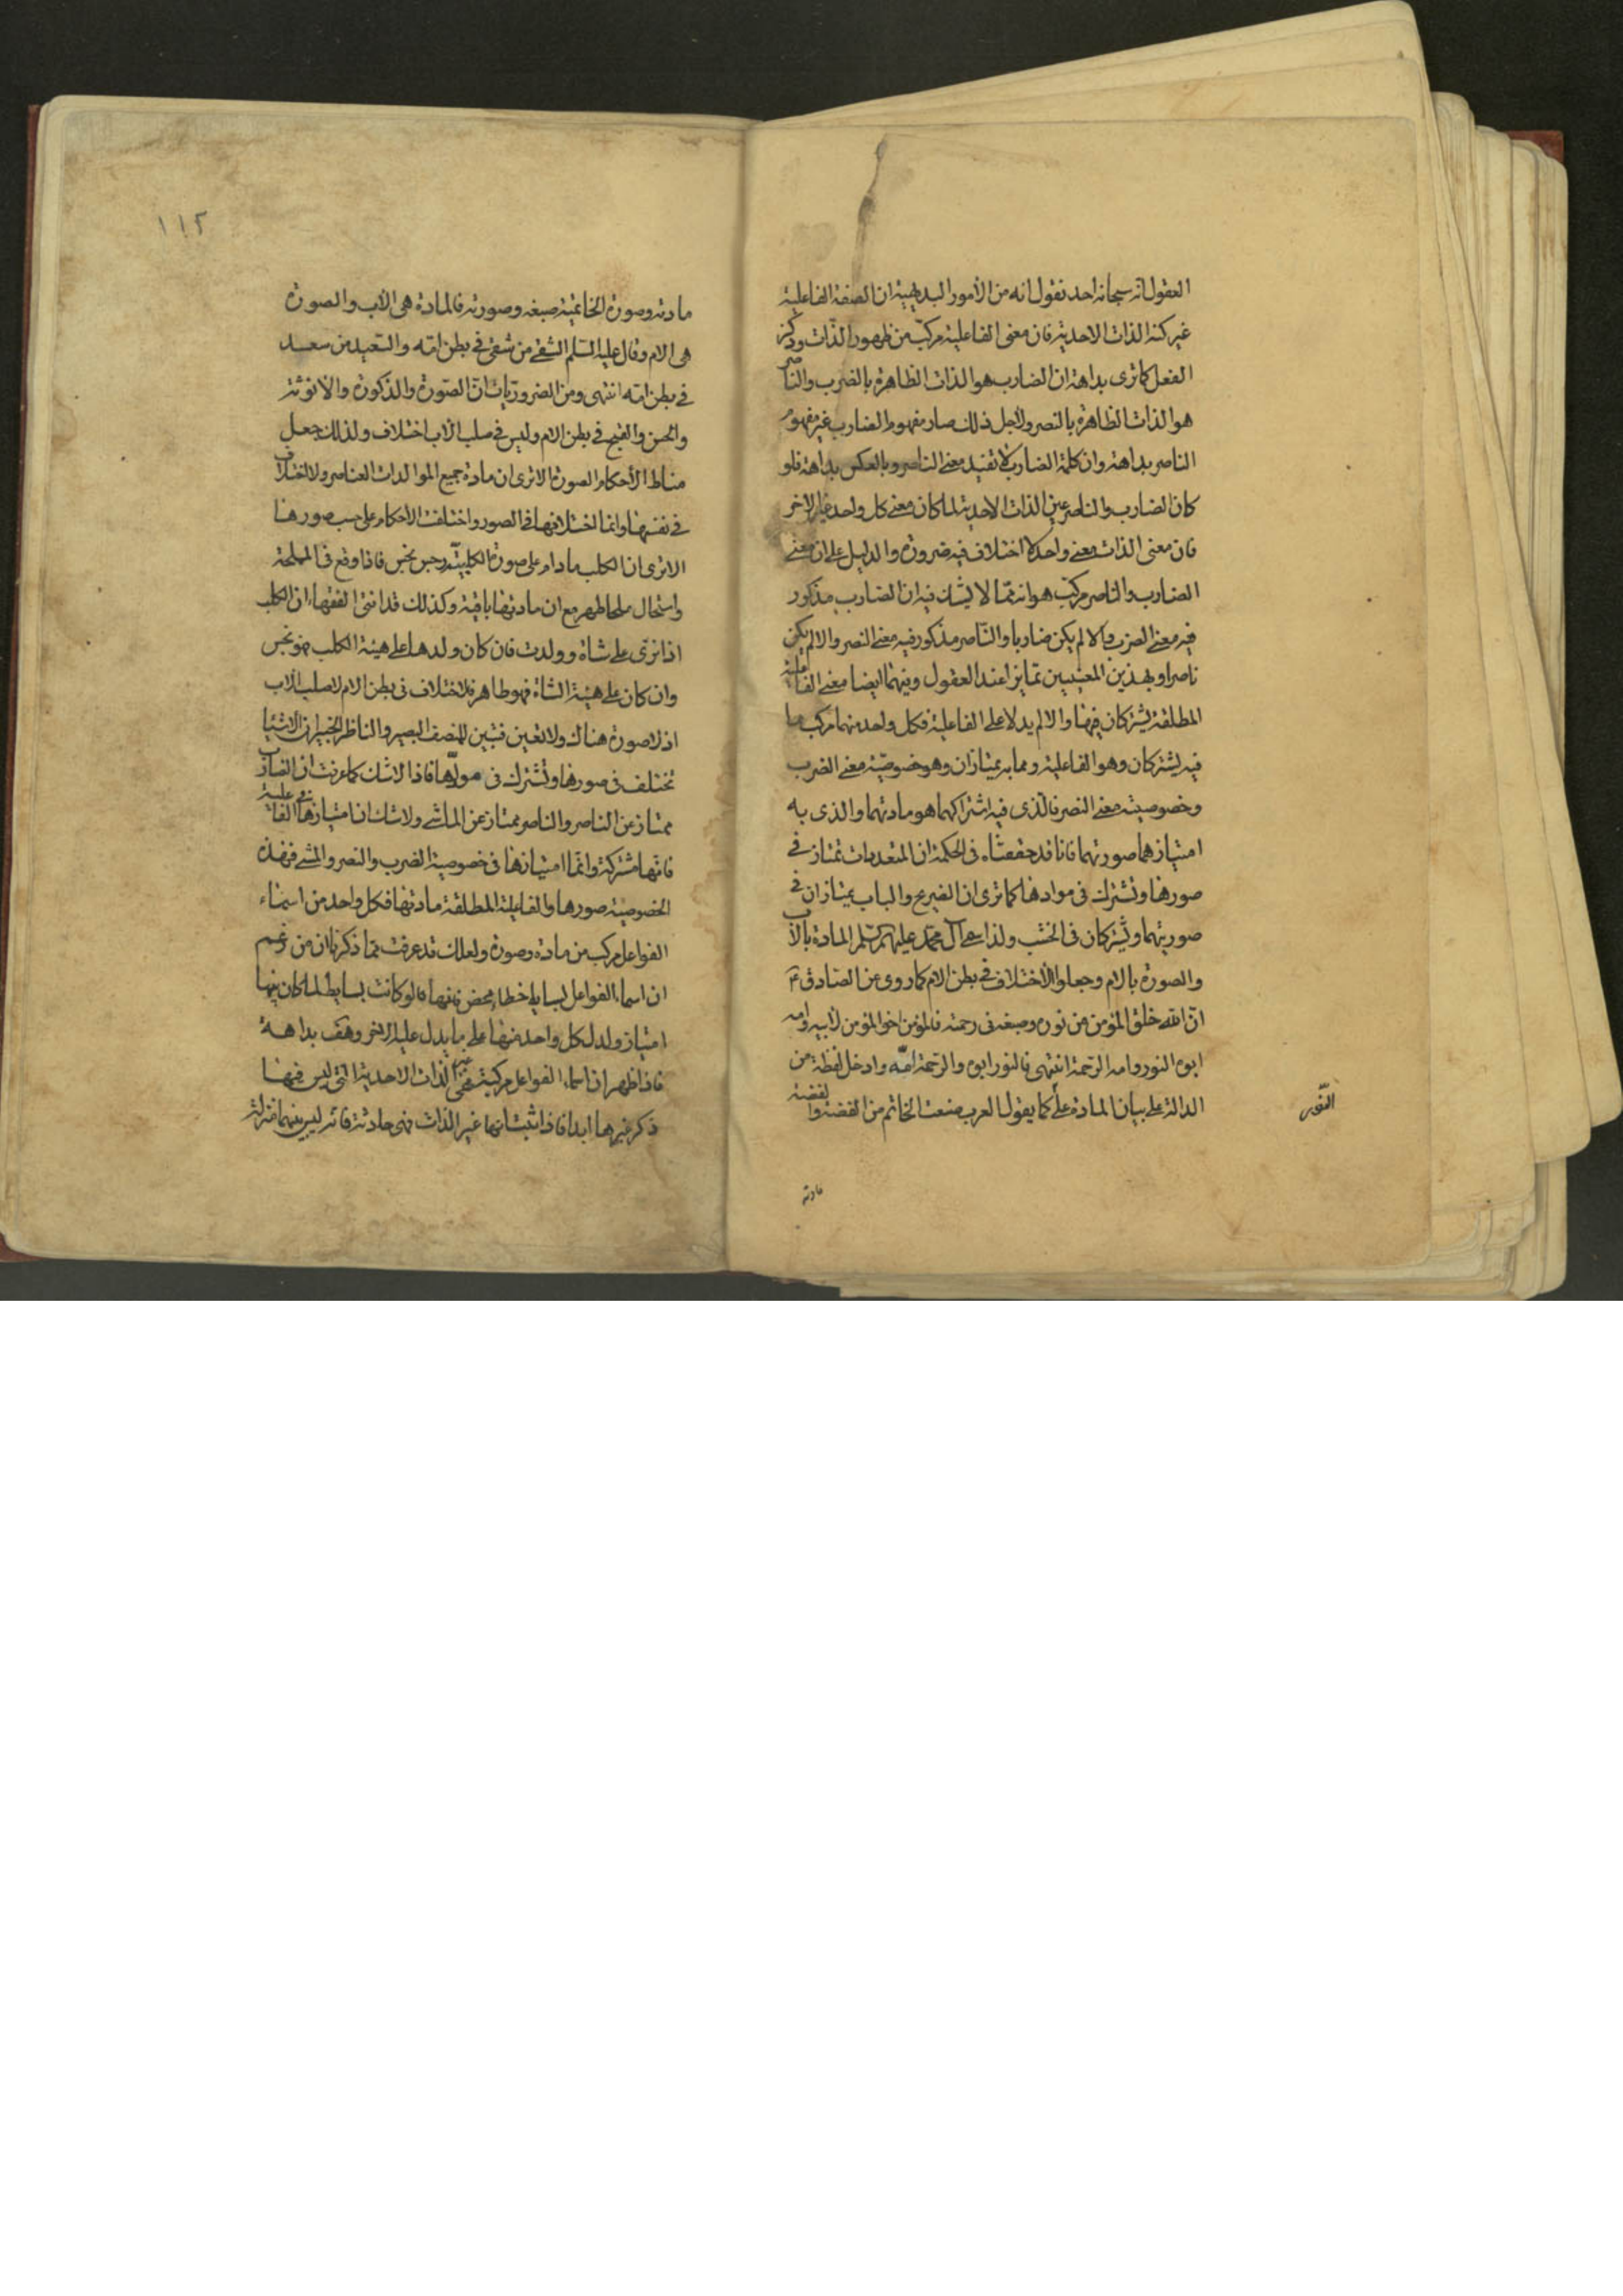 العقول انه سبحانه احد نقول انه من الأمور البديهية ان الصفة الفاعلية
غير كنه الذات الاحدية فان معنى الفاعلية مركب من ظهور الذات وذكر
الفعل كما ترى بداهة ان الضارب هو الذات الظاهرة بالضرب والناصر
هو الذات الظاهرة بالنصر ولاجل ذلك صار مفهوم الضارب غير مفهوم
الناصر بداهة وان كلمة الضارب لا تفيد معنى الناصر وبالعكس بداهة فلو
كان الضارب والناصر عين الذات الاحدية لما كان معنى كل واحد غير الاخر
فان معنى الذات معنى واحد لا اختلاف فيه ضرورة والدليل على ان معنى
الضارب والناصر مركب هو انه مما لا يشك فيه ان الضارب مذكور
فيه معنى الضرب والا لم يكن ضاربا والناصر مذكور فيه معنى النصر والا لم يكن
ناصرا وبهذين المعنيين تمايزا عند العقول وفيهما ايضا معنى الفاعلية
المطلقة يشتركان فيها والا لم يدلا على الفاعلية فكل واحد منهما مركب مما
فيه يشتركان وهو الفاعلية ومما به يمتازان وهو خصوصية معنى الضرب
وخصوصية معنى النصر فالذي فيه اشتراكهما هو مادتهما والذى به
امتيازهما صورتهما فانا قد حققناه فى الحكمة ان المتعددات تمتاز في
صورها وتشترك فى موادها كما ترى ان الضريح والباب يمتازان في
صورتهما ويشتركان فى الخشب ولذا سمى آل محمد عليهم السلم المادة بالأب
والصورة بالام وجعلوا الأختلاف في بطن الام كما روى عن الصادق ع
ان الله خلق المؤمن من نوره وصبغه فى رحمته فالمؤمن اخو المؤمن لابيه وامه
ابوه النور وامه الرحمة انتهى فالنور ابوه والرحمة امه وادخل لفظة من
الدالة على بيان المادة على كما يقول العرب صنعت الخاتم من الفضة والفضة
النور
مادته
١١٢
مادته وصورة الخاتمية صبغه وصورته فالمادة هى الأب والصورة
هى الام وقال عليه السلم الشقي من شقي في بطن امه والسعيد من سعد
في بطن امه انتهى ومن الضروريات ان الصورة والذكورة والانوثة
والحسن والقبح في بطن الام وليس في صلب الأب اختلاف ولذلك جعل
مناط الأحكام الصورة الا ترى ان مادة جميع المواليد ذات العناصر ولا اختلاف
في نفسها وانما اختلافها فى الصور واختلفت الأحكام على حسب صورها
الا ترى ان الكلب مادام على صورة الكلبية رجس نجس فاذا وقع فى المملحة
واستحال ملحا طهر مع ان مادتها باقية وكذلك قد افتى الفقهاء ان الكلب
اذا نزى على شاة وولدت فان كان ولدها على هيئة الكلب فهو نجس
وان كان على هيئة الشاة فهو طاهر فالاختلاف فى بطن الام لا صلب الأب
اذ لا صورة هناك ولا تعين فتبين للمنصف البصير والناظر الخبير ان الاشياء
تختلف فى صورها وتشترك فى موادها فاذا لا شك كما عرفت ان الضارب
ممتاز عن الناصر والناصر ممتاز عن الماشى ولا شك ان امتيازها في الفاعلية
فانها مشتركة وانما امتيازها فى خصوصية الضرب والنصر والمشى فهذه
الخصوصية صورها والفاعلية المطلقة مادتها فكل واحد من اسماء
الفواعل مركب من مادة وصورة ولعلك قد عرفت مما ذكرنا ان من زعم
ان اسماء الفواعل بسايط اخطاء محض فانها لو كانت بسايط لما كان بينها
امتياز ولدل كل واحد منها على ما يدل عليه الاخر وهف بداهة
فاذا ظهر ان اسماء الفواعل مركبة فهي غير الذات الاحدية التى ليس فيها
ذكر غيرها ابدا فاذا ثبت انها غير الذات فهى حادثة فانه ليس بينهما منزلة